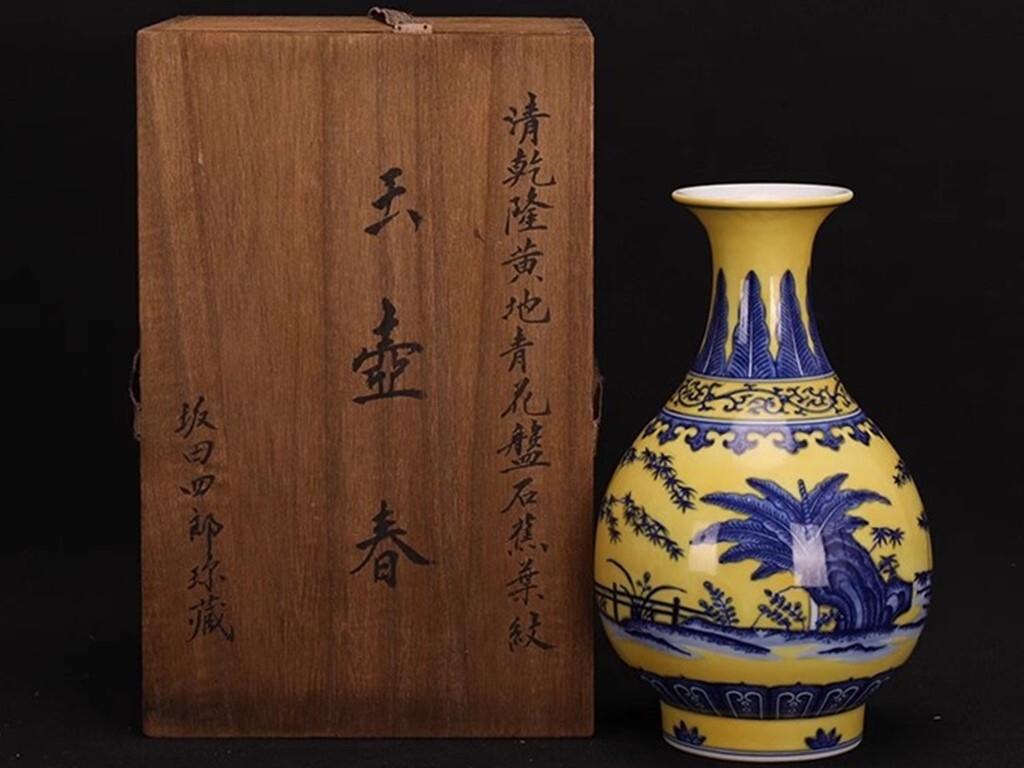 清乾隆黄地青花盤石蕉葉紋
玉壺春
坂田四郎珎藏